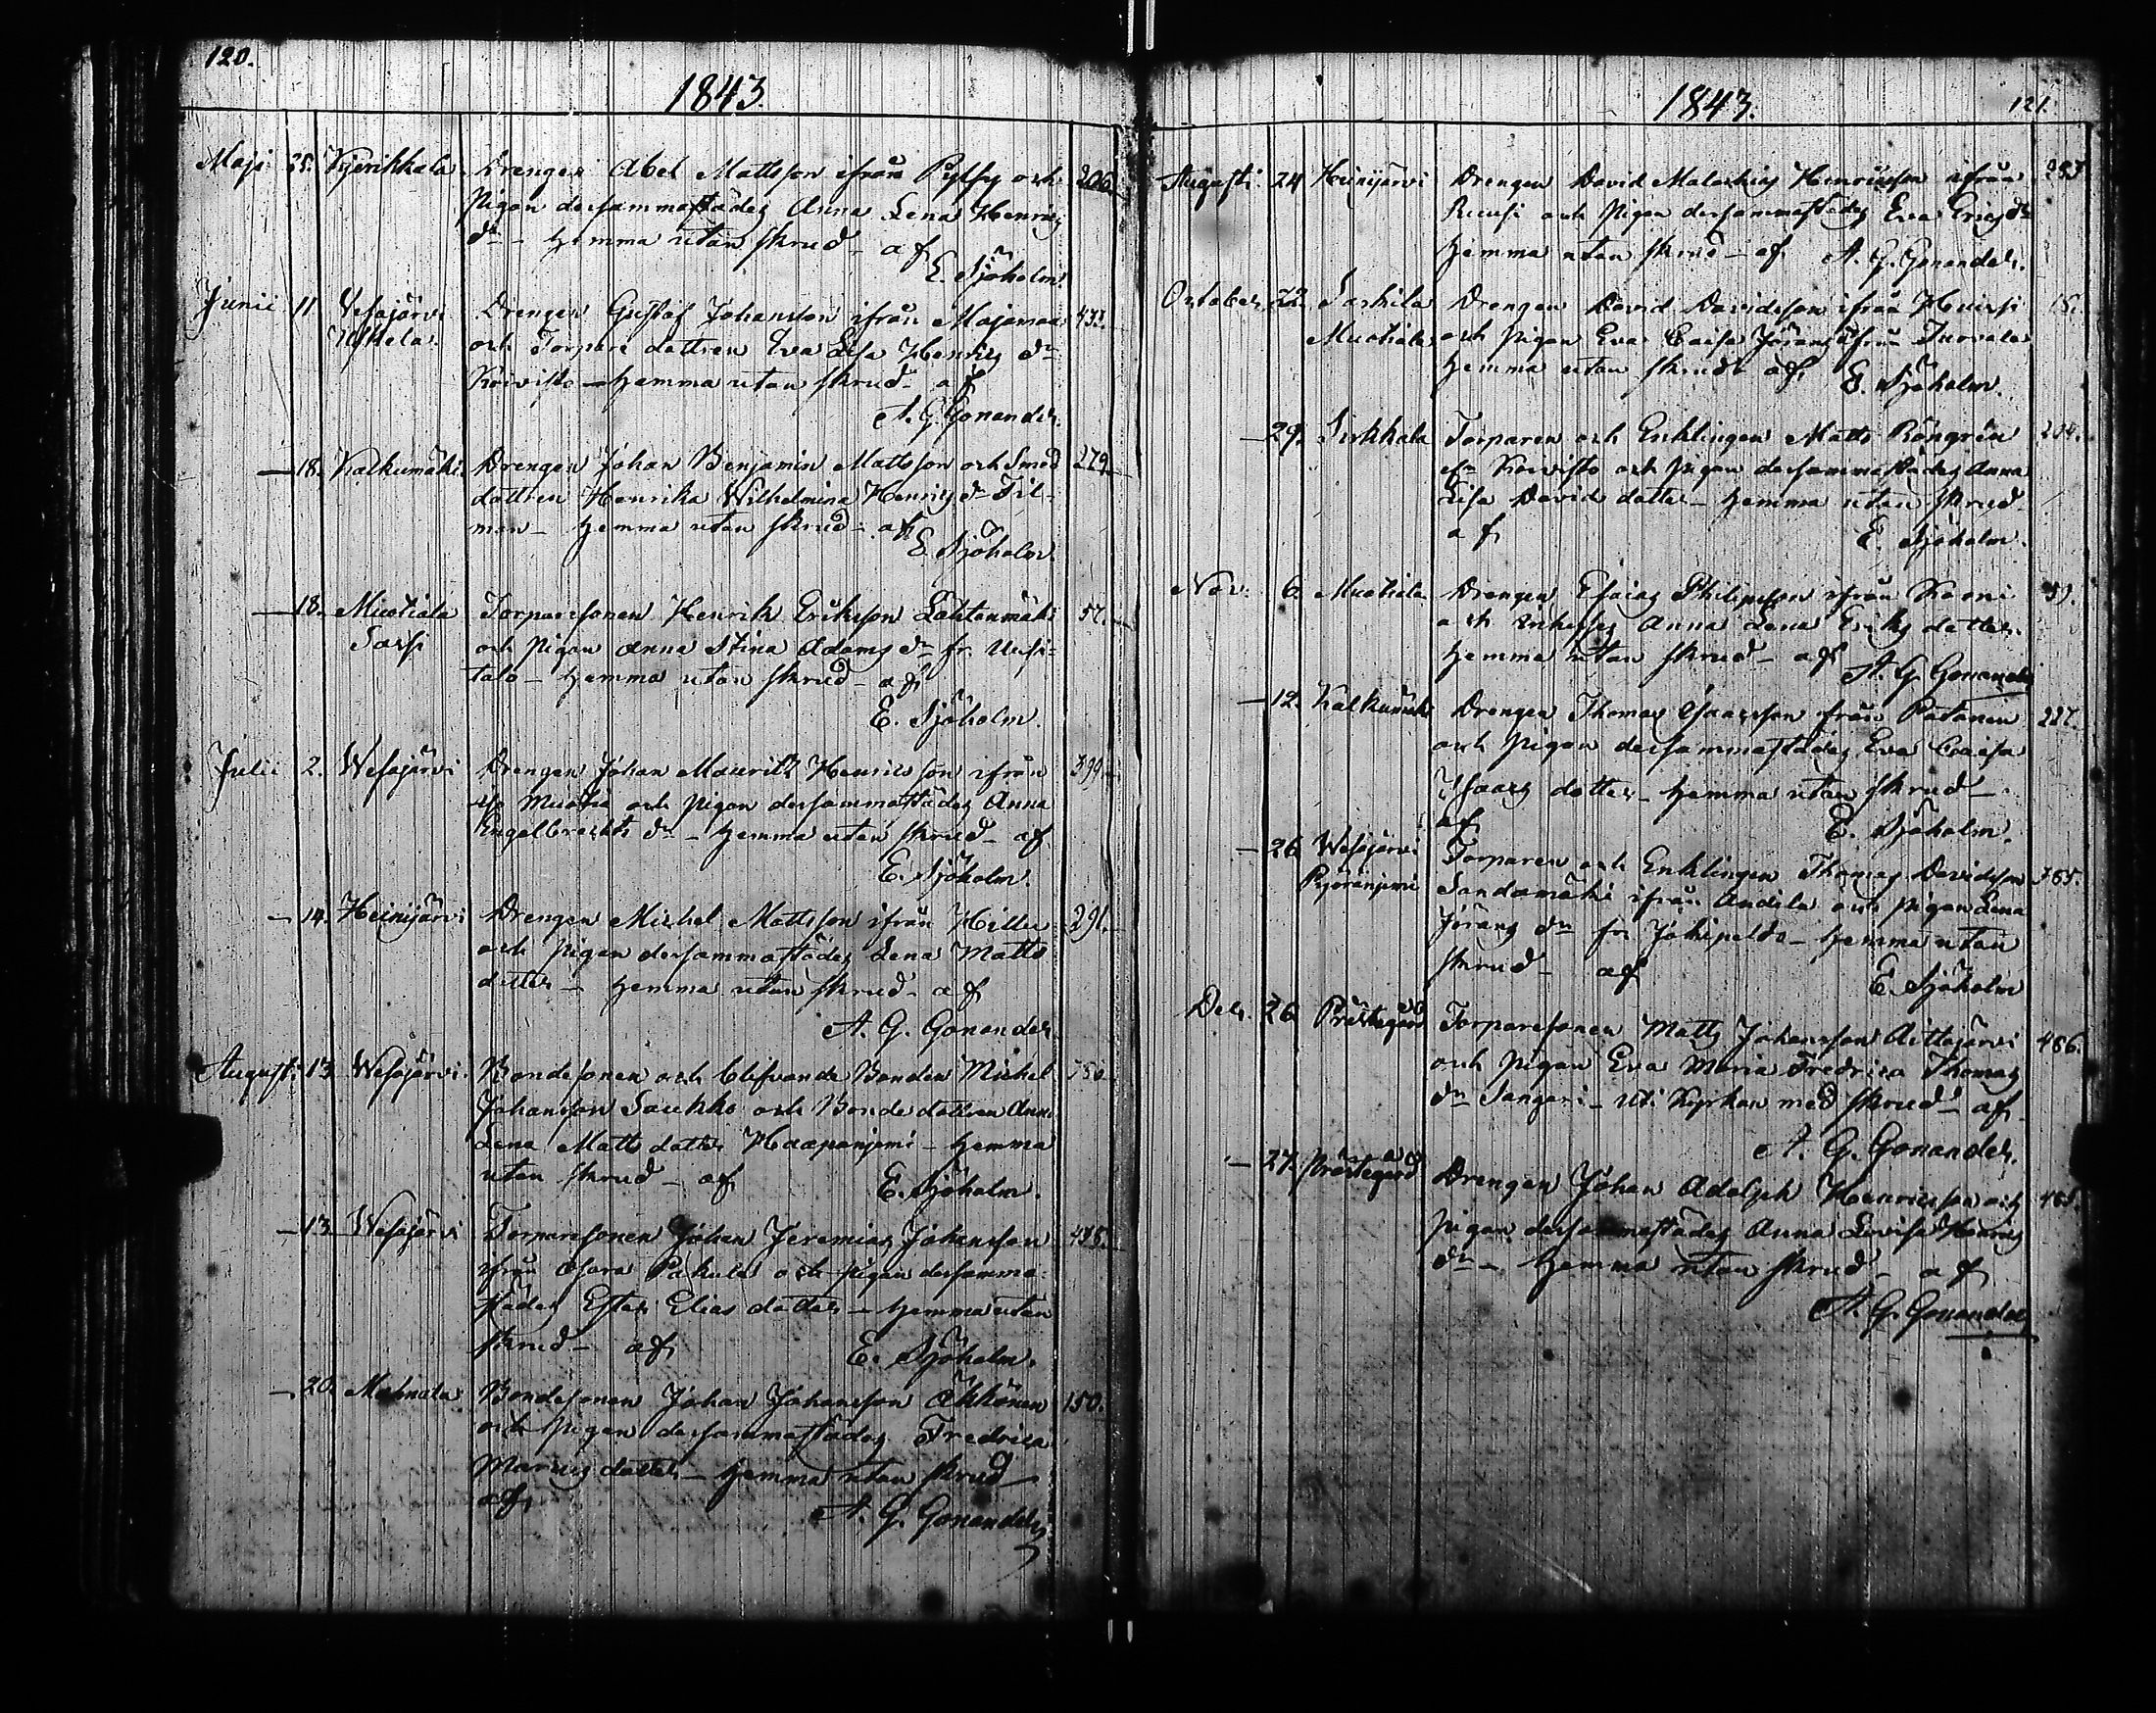 120.
1843.
Maji 25. Kjerikkala Drengen Abel Mattsson ifrån Pylsy och 206
Pigan dersammastädes Anna Lena Henrics
dr - hemma utan skrud - af
E. Sjöholm.
Junii 11 Vesajärvi Drengen Gustaf Johansson ifrån Majamaa 433.
Uttela. och Torpare dottren Eva Lisa Henrics dr
Koivisto - hemma utan skrud - af
A. G. Gonander.
— 18. Kalkumäki Drengen Johan Benjamin Mattsson och Smed 279.
dottren Henrika Wilhelmina Henrics dr Til-
man - hemma utan skrud - af
E. Sjöholm.
— 18. Muotiala Torparesonen Henrik Eriksson Lahtenmäki 57.
Sassi och Pigan Anna Stina Adams dr fr. Uusi-
talo - hemma utan skrud - af
E. Sjöholm.
Julii 2. Wesajärvi Drengen Johan Mauritz Henricsson ifrån 399.
Muotia och Pigan dersammastädes Anna
Engelbrechts dr - hemma utan skrud - af
E. Sjöholm.
— 14. Heinijärvi Drengen Michel Mattsson ifrån Hillu 291.
och Pigan dersammastädes Lena Matts
dotter - hemma utan skrud - af
A. G. Gonander.
Augusti 13 Wesajärvi. Bondesonen och blifvande Bonden Michel
Johansson Saukko och Bonde dottren Anna
Lena Matts dotter Haapaniemi - hemma
utan skrud - af E. Sjöholm.
— 13 Wesajärvi Torparesonen Johan Jeremias Johansson
ifrån Pakula och pigan dersamma-
städes Ester Elias dotter - hemma utan
skrud - af E. Sjöholm.
— 20. Mahnala Bondesonen Johan Johansson Äkkönen 150.
och pigan dersammastädes Fredrica
dotter - hemma utan skrud -
af A. G. Gonander
1843. 121.
Augusti. 24 Heinijärvi Drengen David Malachias Henricsson ifrån
Ruusi och Pigan dersammastädes Eva Erics dr
hemma utan skrud - af A. G. Gonander.
October 22. Sarkila Drengen David Davidsson ifrån Heissi 18.
Muotiala och pigan Eva Caisa Jörans ifrån Juovala
hemma utan skrud af E. Sjöholm.
— 29. Sirkkala Torparen och Enklingen Matts Röngrén 204.
Koivisto och pigan dersammastädes Anna
Lisa Davids dotter - hemma utan skrud -
af E. Sjöholm.
Nov: 6 Muotiala Drengen Esaias Philipsson ifrån Kooni 39.
och Anna Lena Eriks dotter
hemma utan skrud - af A. G. Gonander
— 12. Kalkumäki Drengen Thomas Isaacsson ifrån Patanen 227.
och Pigan dersammastädes Eva Caisa
Isaacs dotter - hemma utan skrud -
af E. Sjöholm.
— 26 Wesajärvi Torparen och Enklingen Thomas Davidsson 365.
Pyöräniemi Sandamäki ifrån Andila och pigan Lena
Jörans dr fr. Jokipeldo - hemma utan
skrud - af E. Sjöholm
Dec. 26 Prästegård Torparesonen Matts Johansson Aittojärvi 486.
och pigan Eva Maria Fredrica Thomas
dr Sangari - uti Kyrkan med skrud - af
A. G. Gonander.
— 27. Prästegård Drengen Johan Adolph Henricsson och 485.
pigan dersammastädes Anna Lovisa Henrics
dr - hemma utan skrud - af
A. G. Gonander